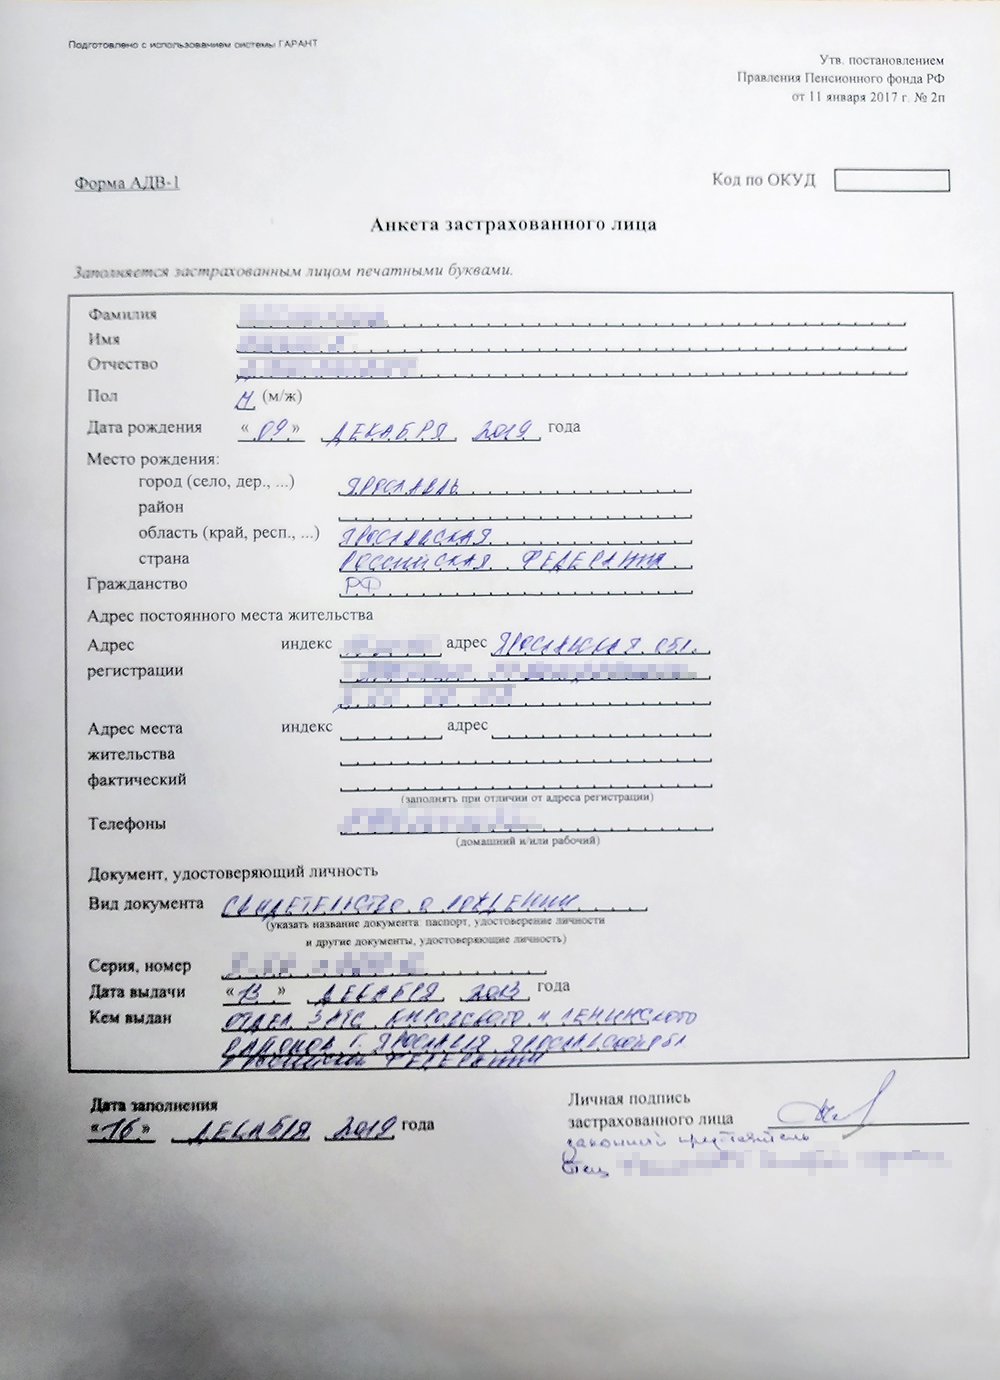 Подготовлено с использованием системы ГАРАНТ
Утв. постановлением
Правления Пенсионного фонда РФ
от 11 января 2017 г. № 2п
Форма АДВ-1
Код по ОКУД
Анкета застрахованного лица
Заполняется застрахованным лицом печатными буквами.
Фамилия
Имя
Отчество
Пол М (м/ж)
Дата рождения « 09 » ДЕКАБРЯ 2019 года
Место рождения:
город (село, дер., ...) ЯРОСЛАВЛЬ
район
область (край, респ., ...) ЯРОСЛАВСКАЯ
страна РОССИЙСКАЯ ФЕДЕРАЦИЯ
Гражданство РФ
Адрес постоянного места жительства
Адрес индекс адрес ЯРОСЛАВСКАЯ ОБЛ.
регистрации
Адрес места индекс адрес
жительства
фактический
(заполнять при отличии от адреса регистрации)
Телефоны
(домашний и/или рабочий)
Документ, удостоверяющий личность
Вид документа СВИДЕТЕЛЬСТВО О РОЖДЕНИИ
(указать название документа: паспорт, удостоверение личности
и другие документы, удостоверяющие личность)
Серия, номер
Дата выдачи « 13 » ДЕКАБРЯ года
Кем выдан ОТДЕЛ ЗАГС КИРОВСКОГО И ЛЕНИНСКОГО
РАЙОНОВ Г. ЯРОСЛАВЛЯ ЯРОСЛАВСКОЙ ОБЛ
РОССИЙСКОЙ ФЕДЕРАЦИИ
Дата заполнения
« 16 » ДЕКАБРЯ 2019 года
Личная подпись
застрахованного лица
законный представитель
отец